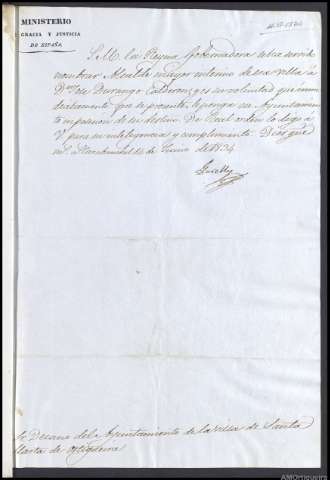 MINISTERIO
GRACIA Y JUSTICIA
DE ESPAÑA
S. M. la Reyna Gobernadora se ha servido
nombrar Alcalde mayor interino de esa villa á
Dn José Durango Calderon, y es su voluntad que inme
diatamente que se presente, le ponga ese Ayuntamien
to en posesion de su destino. De Real orden lo digo á
V para su inteligencia y cumplimiento. Dios gue
Junio de 1834
Sr Decano del Ayuntamiento de la villa de Santa
Marta de Ortigueira